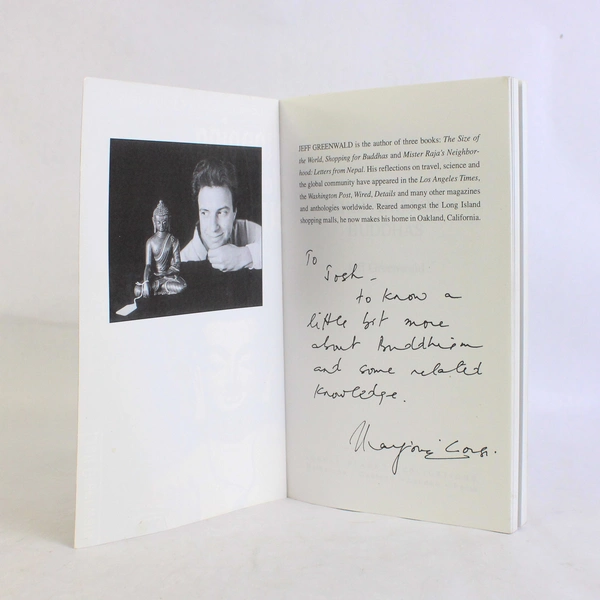 JEFF GREENWALD is the author of three books: The Size of
the World, Shopping for Buddhas and Mister Raja's Neighbor-
hood: Letters from Nepal. His reflections on travel, science and
the global community have appeared in the Los Angeles Times,
the Washington Post, Wired, Details and many other magazines
and anthologies worldwide. Reared amongst the Long Island
shopping malls, he now makes his home in Oakland, California.
To
Josh -
to know a
little bit more
about Buddhism
and some related
knowledge.